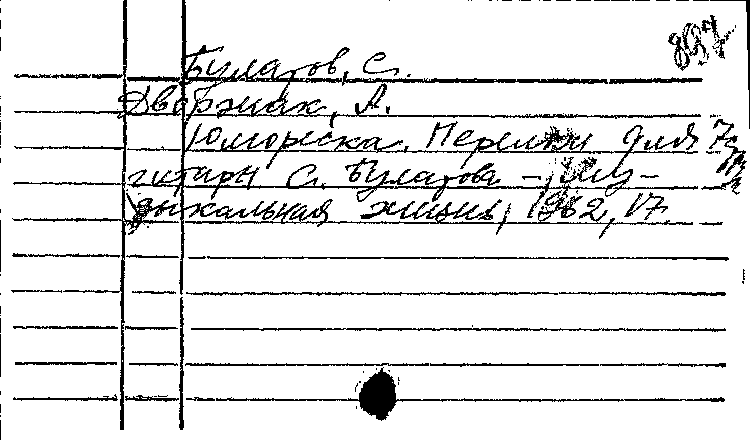 897
Булатов, С.
Дворжак, А.
Юмореска. Перелож для 7
гитары С. Булатова – Му-
зыкальная жизнь, 1962, 17.